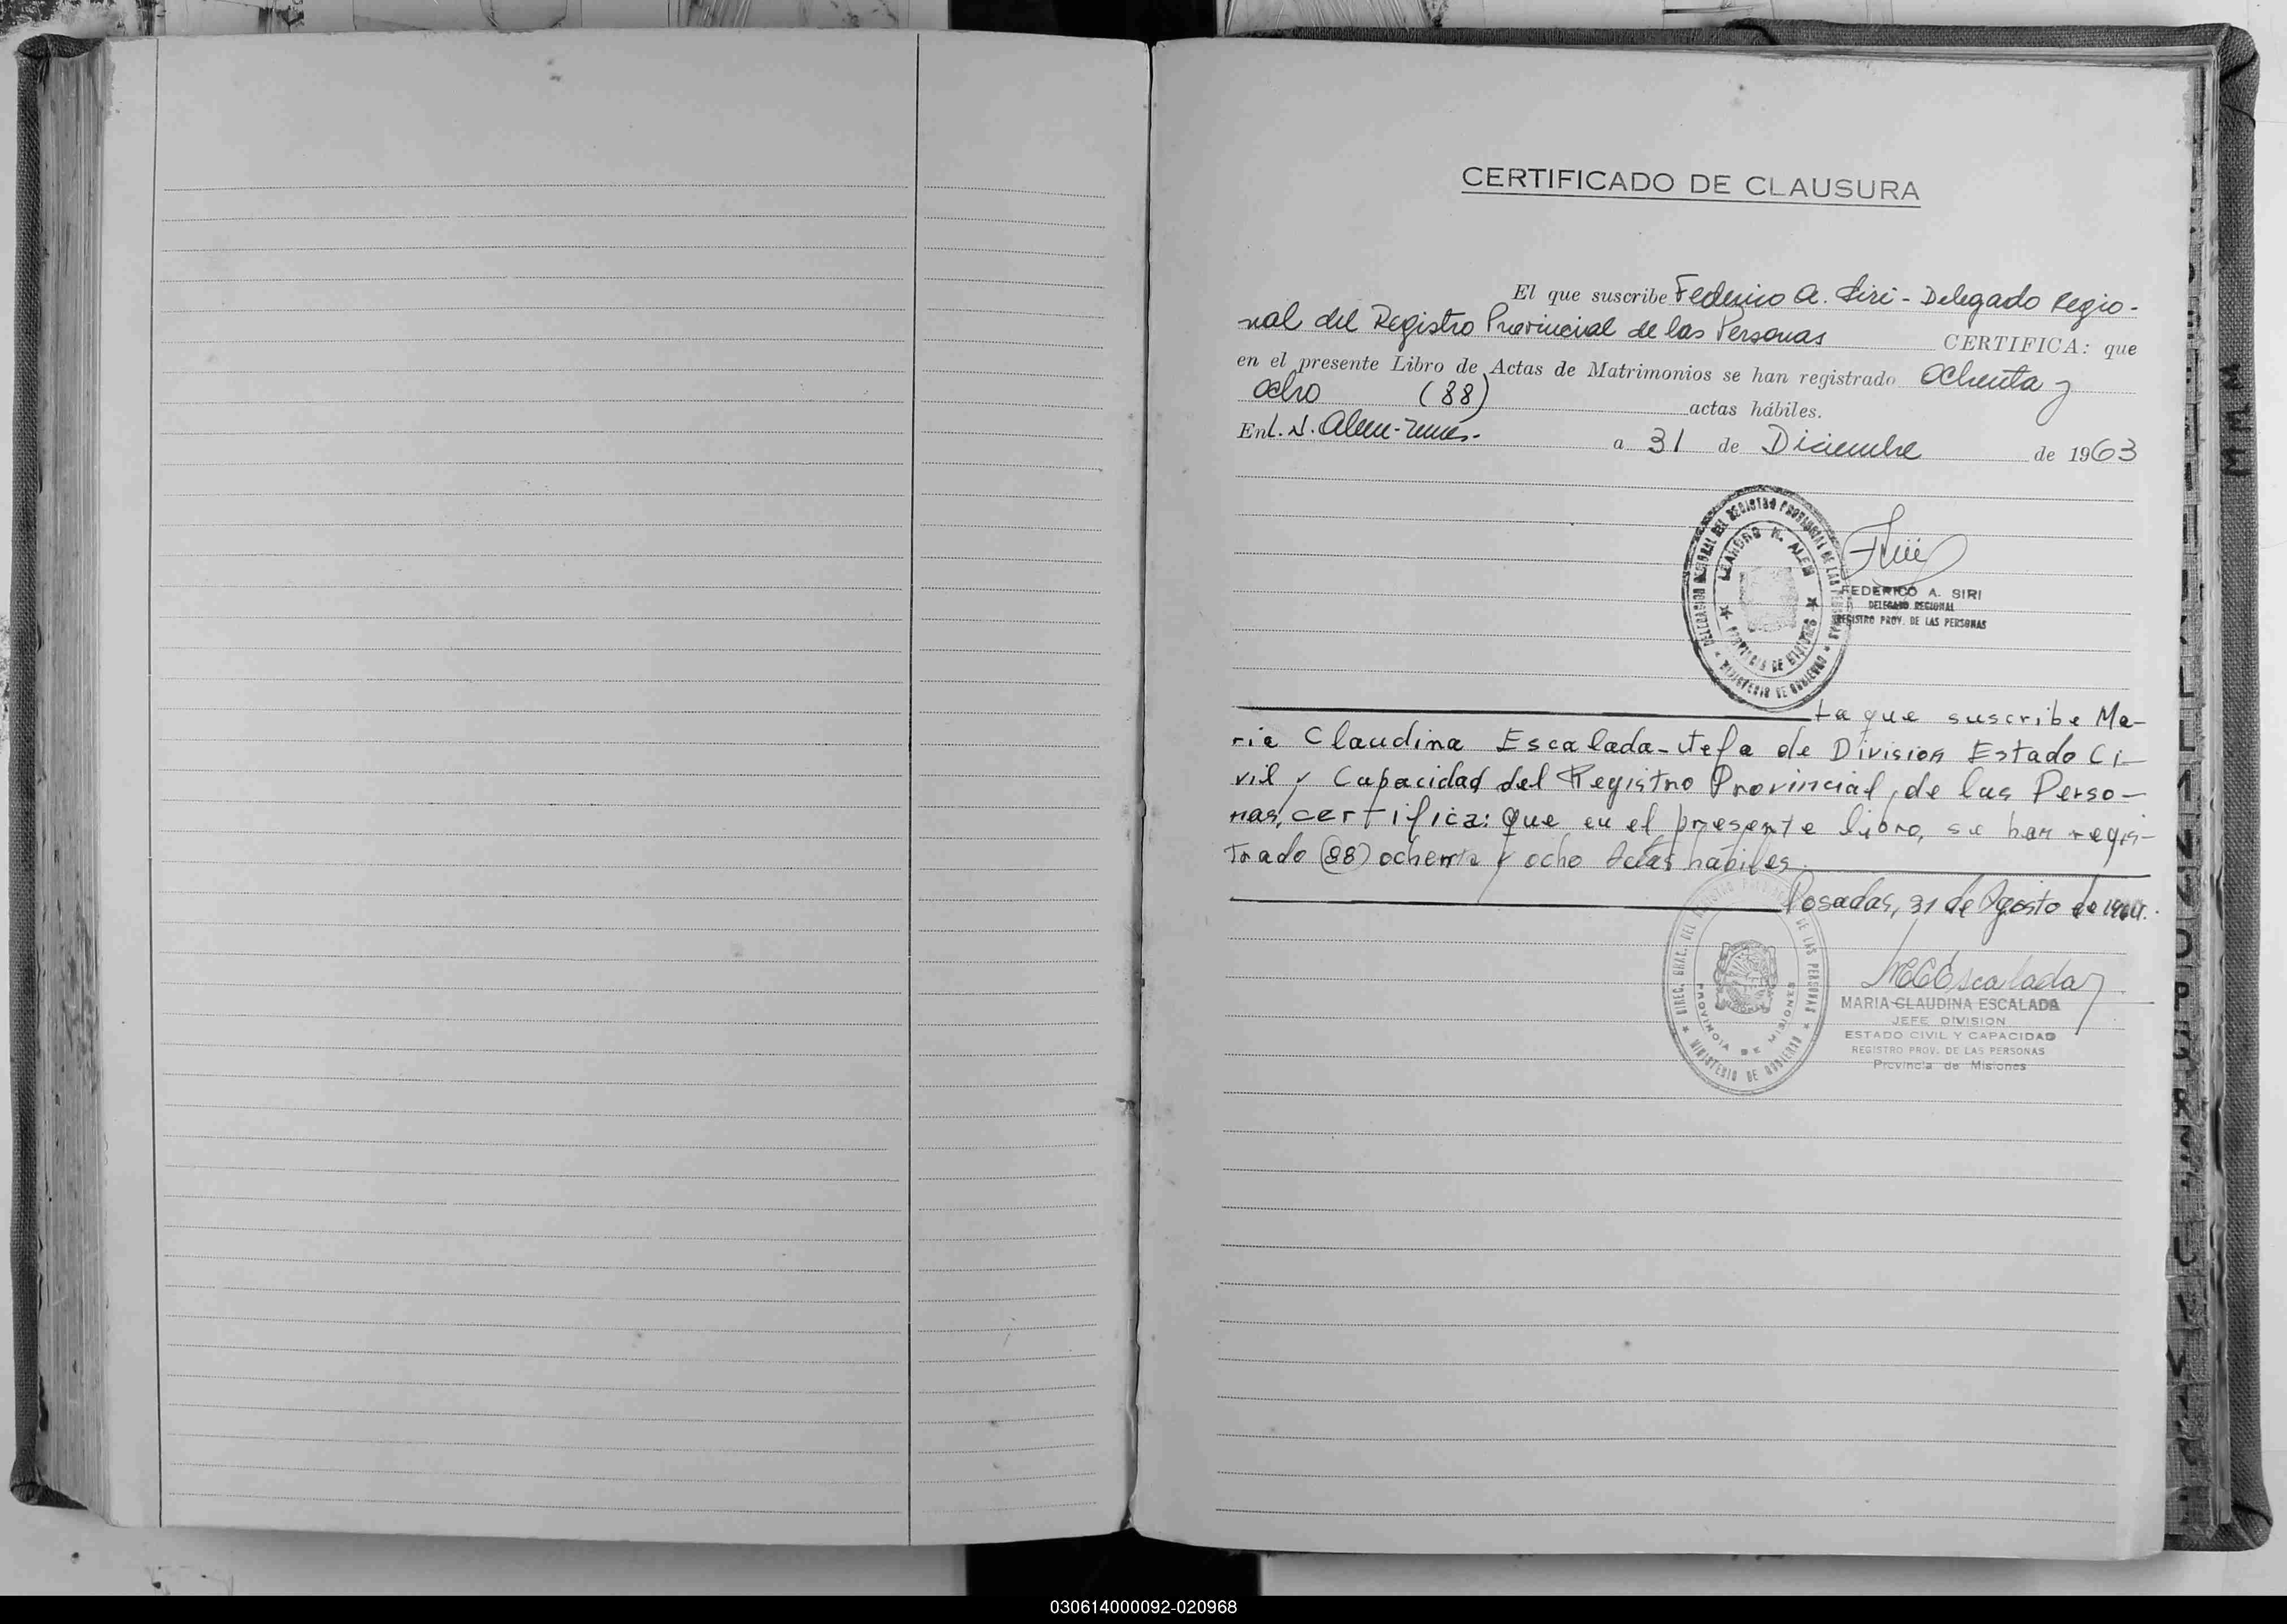 CERTIFICADO DE CLAUSURA
El que suscribe Federico A. Siri - Delegado Regio-
nal del Registro Provincial de las Personas CERTIFICA: que
en el presente Libro de Actas de Matrimonios se han registrado Ochenta y
ocho (88) actas hábiles.
En L. N. Alem - a 31 de Diciembre de 1963
DELEGACION REGIONAL DEL REGISTRO PROVINCIAL DE LAS PERSONAS
LEANDRO N. ALEM
PROVINCIA DE MISIONES
MINISTERIO DE GOBIERNO
FEDERICO A. SIRI
DELEGADO REGIONAL
REGISTRO PROV. DE LAS PERSONAS
La que suscribe Ma-
ria Claudina Escalada - Jefa de Division Estado Ci-
vil y Capacidad del Registro Provincial, de las Perso-
nas, certifica: que en el presente libro, se han regis-
trado (88) ochenta y ocho Actas hábiles.
Posadas, 31 de Agosto de 1964.
DIREC. GRAL. DEL REGISTRO PROVINCIAL DE LAS PERSONAS
PROVINCIA DE MISIONES
MINISTERIO DE GOBIERNO
MCEscalada
MARIA CLAUDINA ESCALADA
JEFE DIVISION
ESTADO CIVIL Y CAPACIDAD
REGISTRO PROV. DE LAS PERSONAS
Provincia de Misiones
030614000092-020968